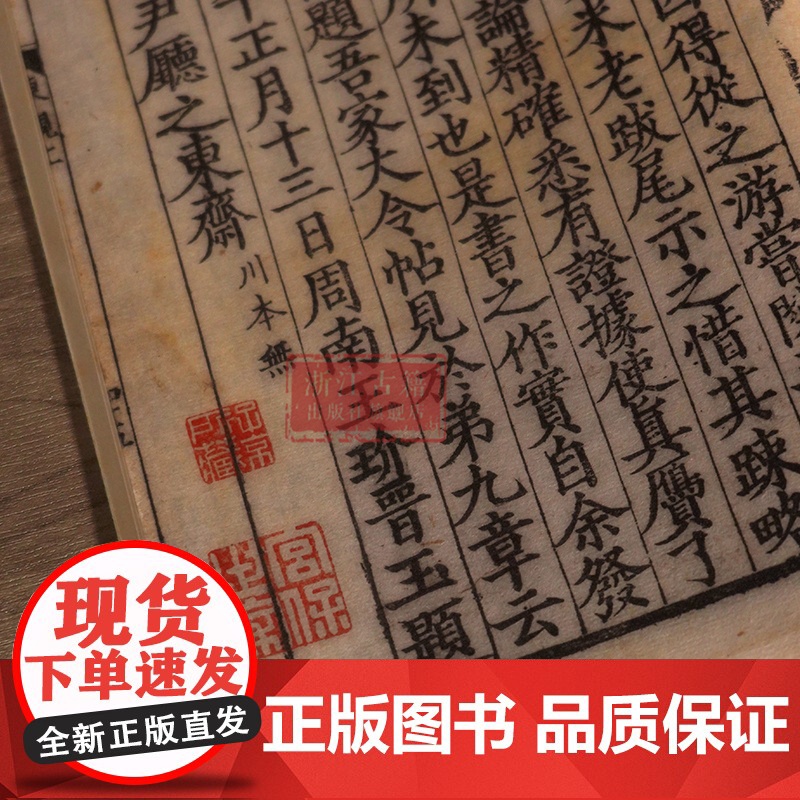 得從之游嘗
米老跋尾示之惜其疎略
論精確悉有證據使真贗了
未到也是書之作實自余發
題吾家大令帖見於第九章云
正月十三日周南王玠晉玉題
尹廳之東齋 川本無
宮保
浙江古籍
出版社旗舰店
现货
下单速发
全新正版直发
正版图书 品质保证